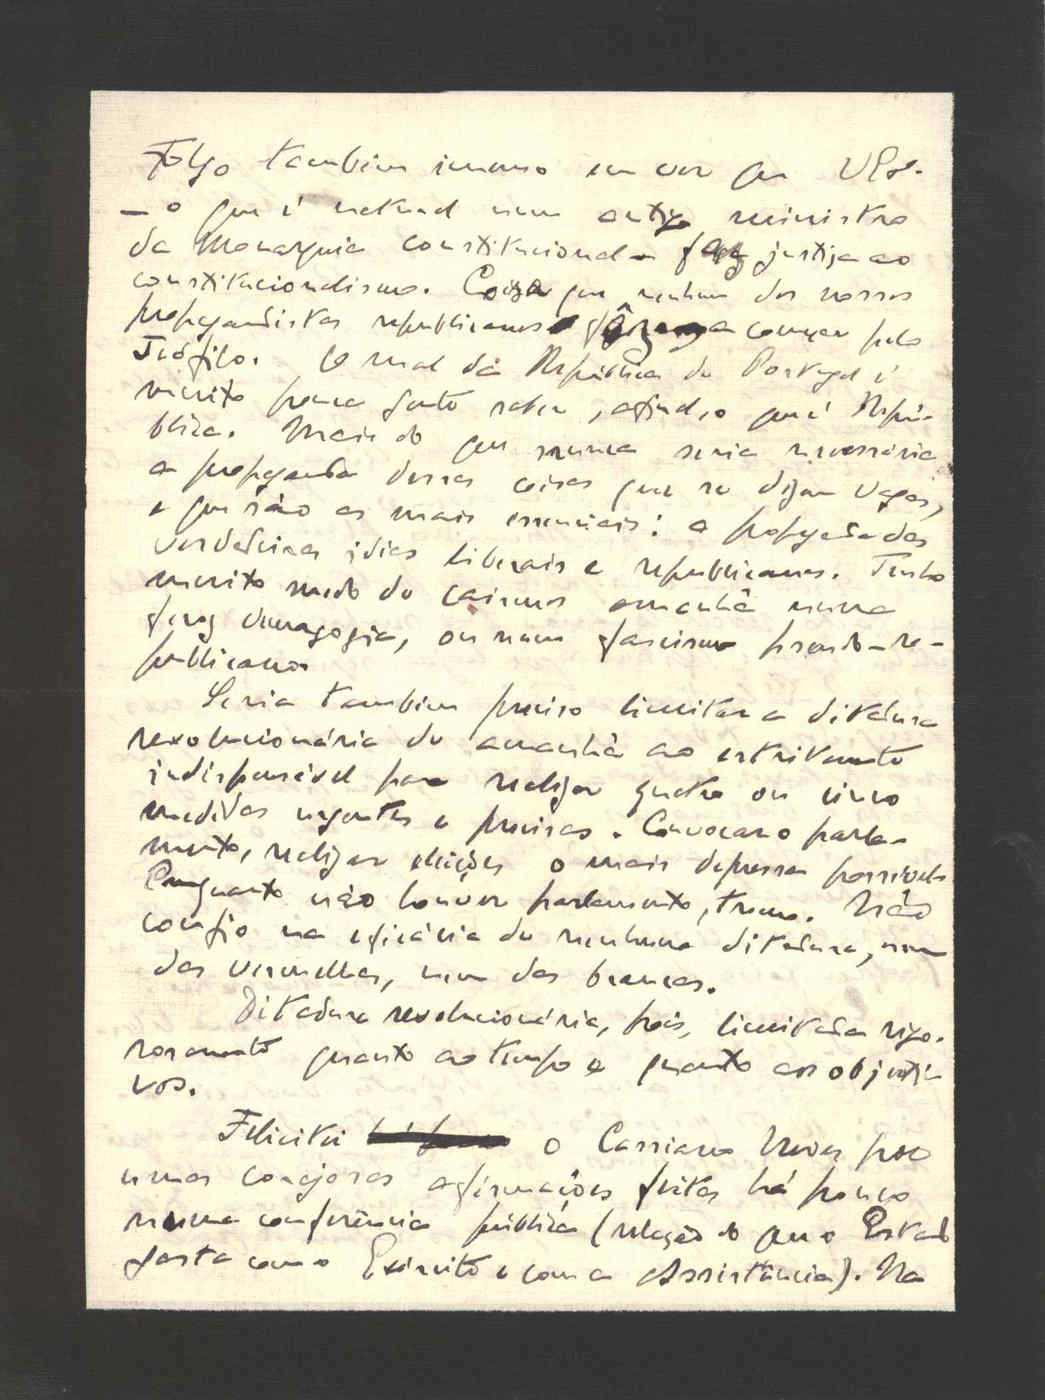 Folgo tambem imenso em ver que V. Ex.ª
— o que é natural num antigo ministro
da Monarquia constitucional — faz justiça ao
constitucionalismo. Coisa que nenhum dos nossos
propagandistas republicanos fêz, a começar pelo
Teófilo. O mal da República de Portugal é
muito pouca gente saber, afinal, o que é Repú-
blica. Mais do que nunca seria necessária
a propaganda dessas coisas que se dizem vagas,
e que são as mais essenciais: a propaganda das
verdadeiras idias liberais e republicanas. Tenho
muito medo de cairmos amanhã numa
feroz demagogia, ou num fascismo pseudo-re-
publicano.
Seria tambem preciso limitar a ditadura
revolucionária de amanhã ao estritamente
indispensável para realizar quatro ou cinco
medidas urgentes e precisas. Convocar o parla-
mento, realizar eleições o mais depressa possivel.
Emquanto não houver parlamento, tremo. Não
confio na eficácia de nenhuma ditadura, nem
das vermelhas, nem das brancas.
Ditadura revolucionária, pois, limitada rigo-
rosamente quanto ao tempo e quanto aos objecti-
vos.
Felicitei o Cassiano Neves por
umas corajosas afirmações feitas há pouco
numa conferência pública (relação do que o Estado
gasta com o Exército e com a Assistência). Na